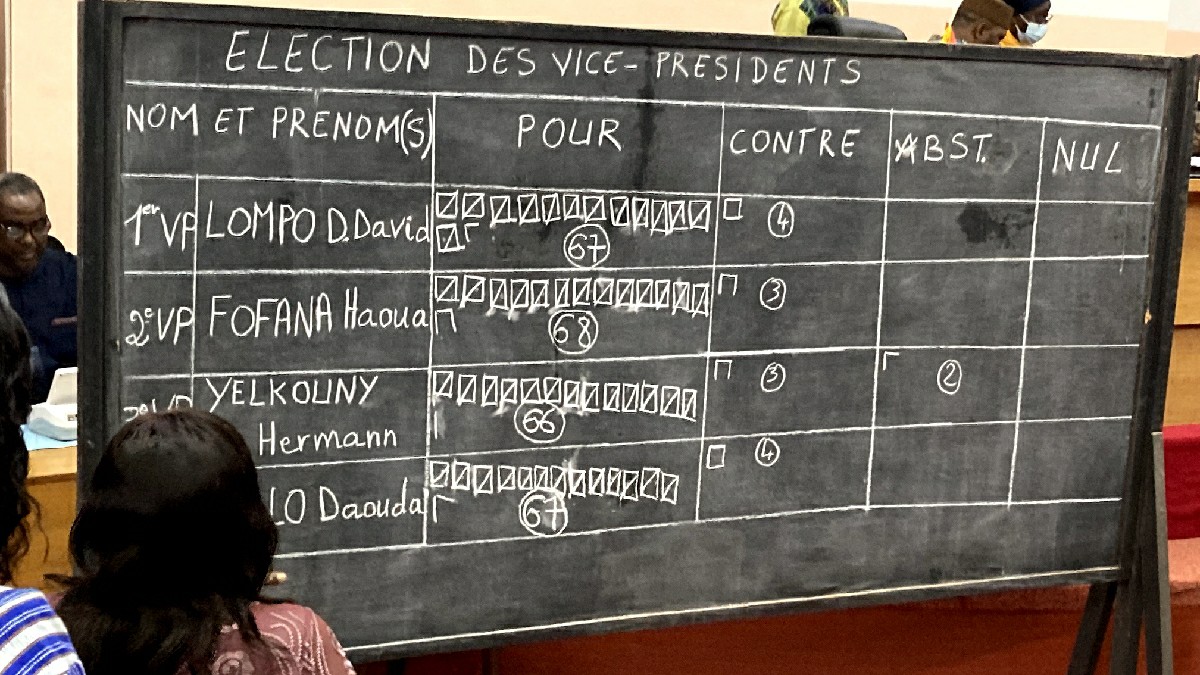 ELECTION DES VICE-PRESIDENTS
NOM ET PRENOM(S) POUR CONTRE ABST. NUL
1er VP LOMPO D.David 67 4
2e VP FOFANA Haoua 68 3
YELKOUNY Hermann 66 3 2
LO Daouda 67 4